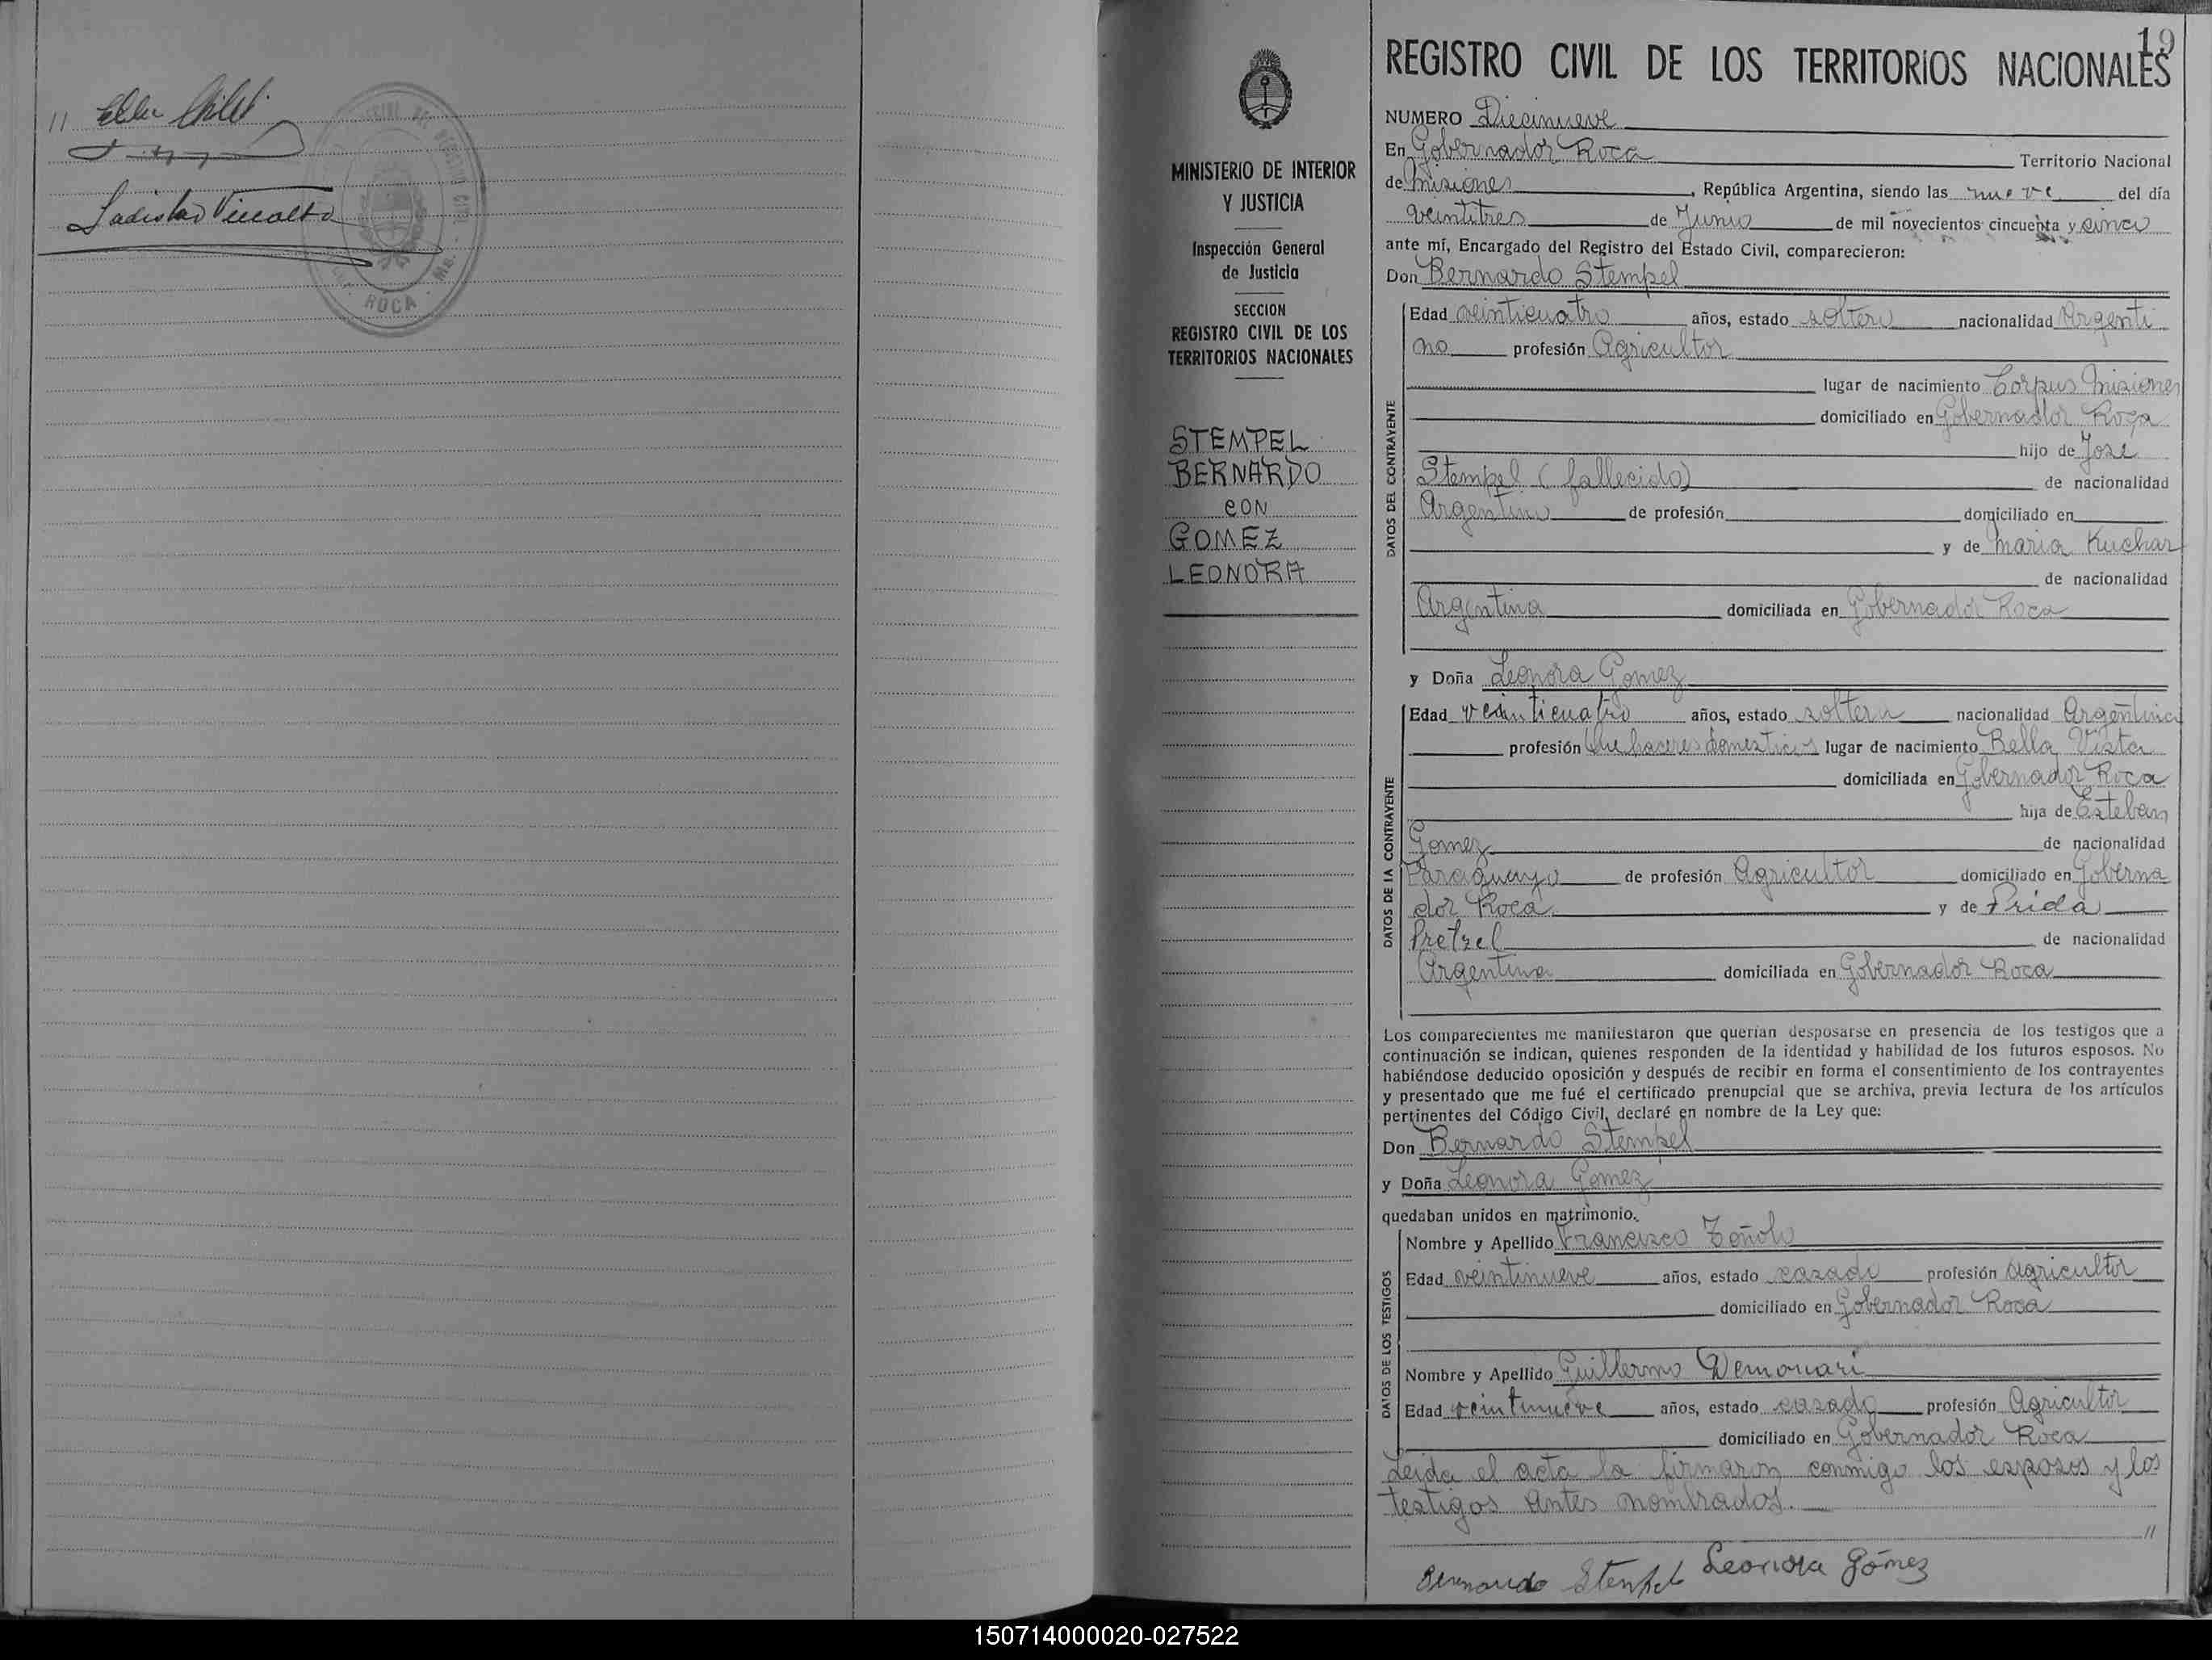 Ladislao Villalba
ROCA
19
REGISTRO CIVIL DE LOS TERRITORIOS NACIONALES
MINISTERIO DE INTERIOR
Y JUSTICIA
Inspección General
de Justicia
SECCION
REGISTRO CIVIL DE LOS
TERRITORIOS NACIONALES
STEMPEL
BERNARDO
CON
GOMEZ
LEONORA
NUMERO Diecinueve
En Gobernador Roca Territorio Nacional
de Misiones, República Argentina, siendo las nueve del día
veintitres de Junio de mil novecientos cincuenta y cinco
ante mí, Encargado del Registro del Estado Civil, comparecieron:
Don Bernardo Stempel
DATOS DEL CONTRAYENTE
Edad veinticuatro años, estado soltero nacionalidad Argenti
no profesión Agricultor
lugar de nacimiento Corpus Misiones
domiciliado en Gobernador Roca
hijo de José
Stempel (fallecido) de nacionalidad
Argentino de profesión domiciliado en
y de Maria Kuchar
de nacionalidad
Argentina domiciliada en Gobernador Roca
y Doña Leonora Gomez
DATOS DE LA CONTRAYENTE
Edad veinticuatro años, estado soltera nacionalidad Argentina
profesión Quehaceres domesticos lugar de nacimiento Bella Vista
domiciliada en Gobernador Roca
hija de Esteban
Gomez de nacionalidad
Paraguayo de profesión Agricultor domiciliado en Goberna
dor Roca y de Frida
Pretzel de nacionalidad
Argentina domiciliada en Gobernador Roca
Los comparecientes me manifestaron que querían desposarse en presencia de los testigos que a
continuación se indican, quienes responden de la identidad y habilidad de los futuros esposos. No
habiéndose deducido oposición y después de recibir en forma el consentimiento de los contrayentes
y presentado que me fué el certificado prenupcial que se archiva, previa lectura de los artículos
pertinentes del Código Civil, declaré en nombre de la Ley que:
Don Bernardo Stempel
y Doña Leonora Gomez
quedaban unidos en matrimonio.
DATOS DE LOS TESTIGOS
Nombre y Apellido Francisco
Edad veintinueve años, estado casado profesión agricultor
domiciliado en Gobernador Roca
Nombre y Apellido Guillermo
Edad veintinueve años, estado casado profesión Agricultor
domiciliado en Gobernador Roca
Leida el acta la firmaron conmigo los esposos y los
testigos antes nombrados.
//
Bernardo Stempel Leonora Gómez
150714000020-027522